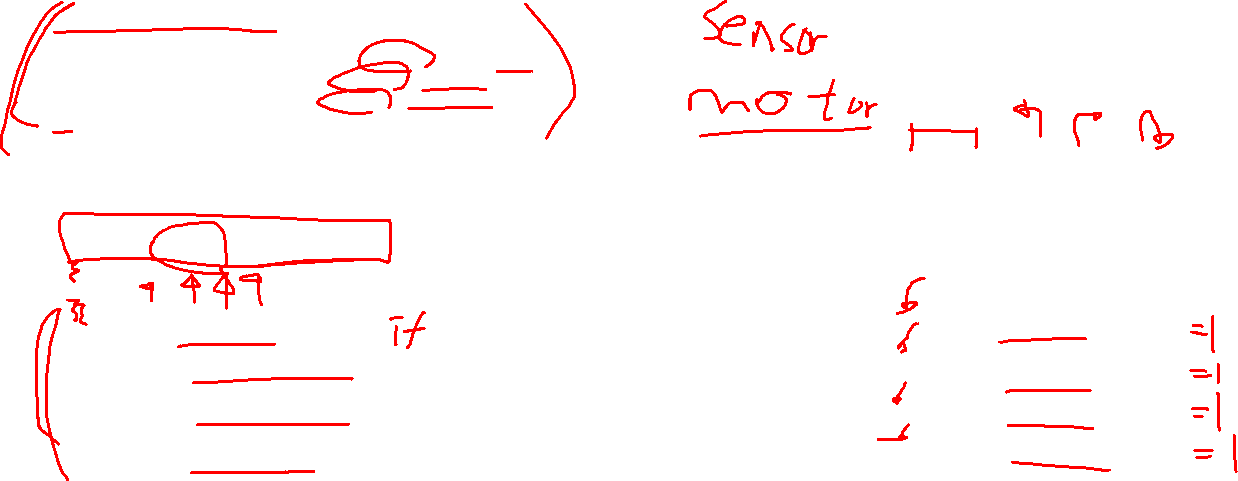 sensor
motor
if
=1
=1
=1
=1